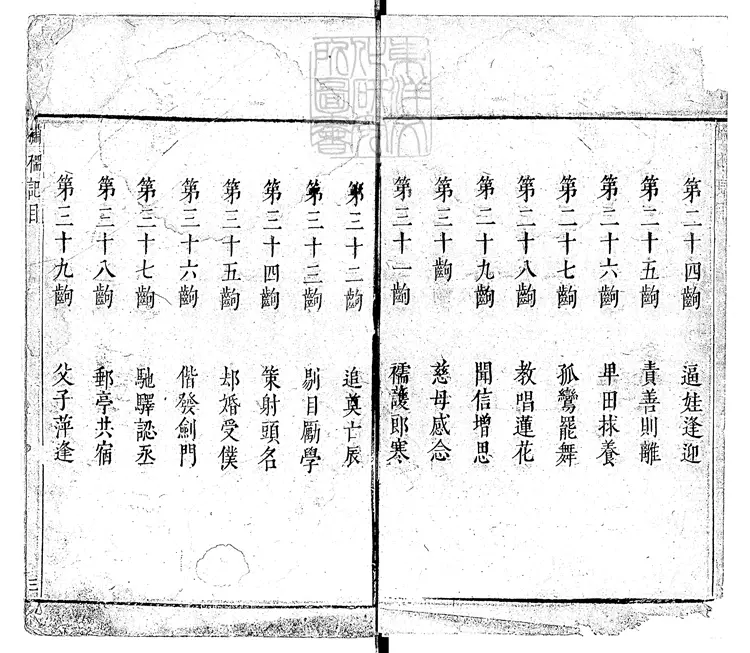 第二十四齣 逼娃逢迎
第二十五齣 責善則離
第二十六齣 卑田捄養
第二十七齣 孤鸞罷舞
第二十八齣 教唱蓮花
第二十九齣 聞信增思
第三十齣 慈母感念
第三十一齣 襦護郎寒
第三十二齣 追奠亡辰
第三十三齣 剔目勵學
第三十四齣 策射頭名
第三十五齣 却婚受僕
第三十六齣 偕發劍門
第三十七齣 馳驛認丞
第三十八齣 郵亭共宿
第三十九齣 父子萍逢
繡襦記目
三